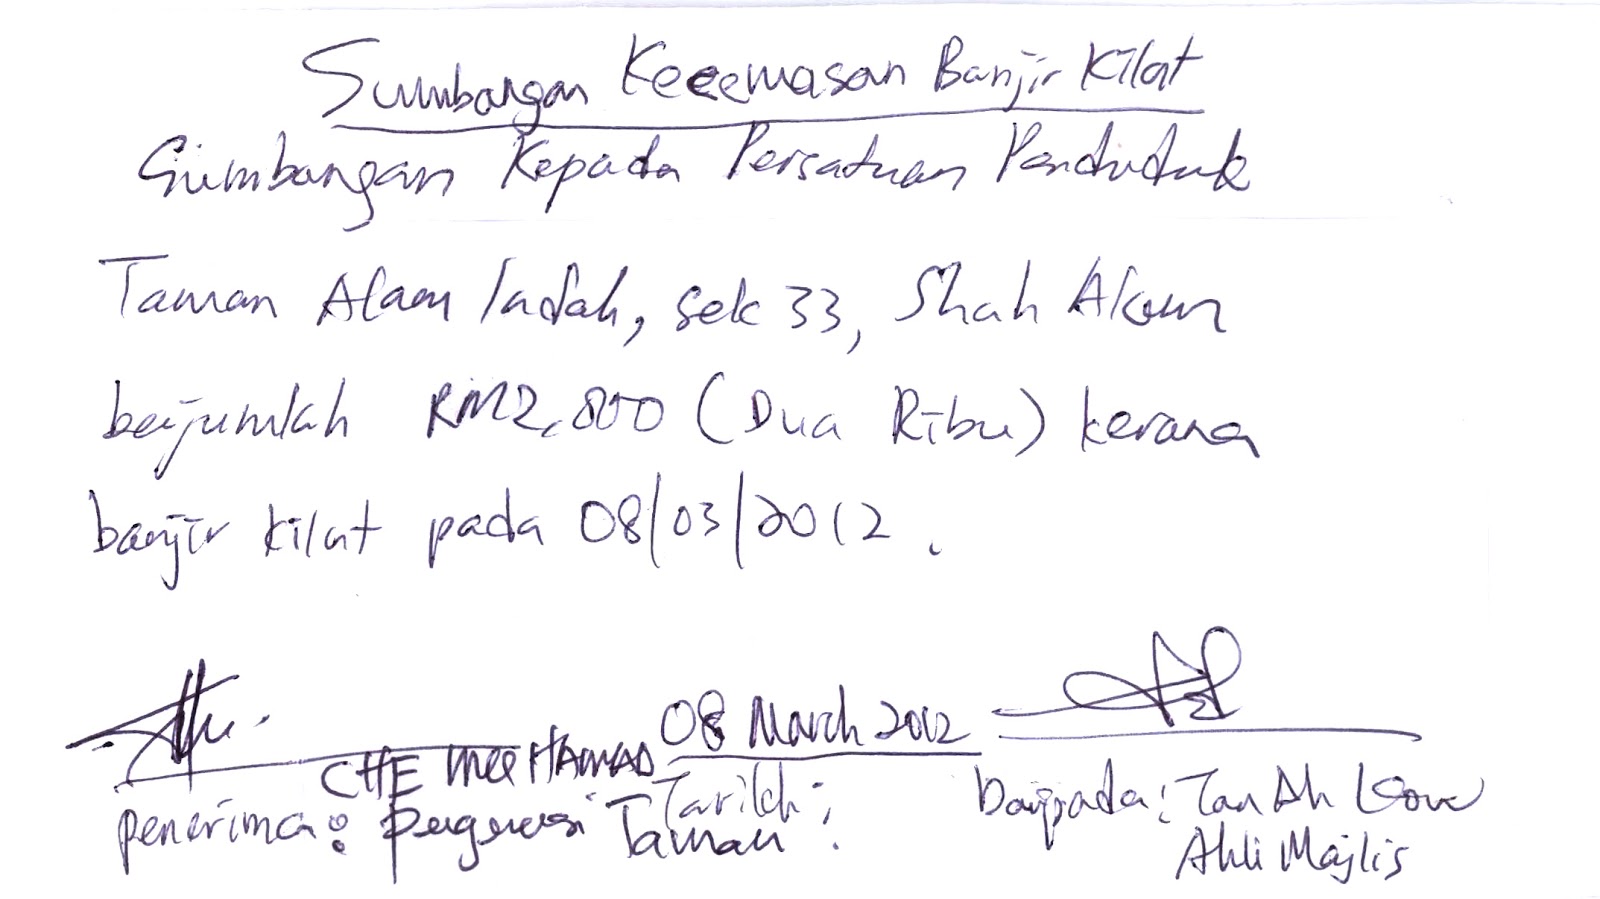 Sumbangan Kecemasan Banjir Kilat
Sumbangan Kepada Persatuan Penduduk
Taman Alam Indah, Sek 33, Shah Alam
berjumlah RM2,800 (Dua Ribu) kerana
banjir kilat pada 08/03/2012.
08 March 2012
CHE MEE HAMAD
penerima: Pengerusi Taman
Tarikh:
daripada: Tan Ah
Ahli Majlis